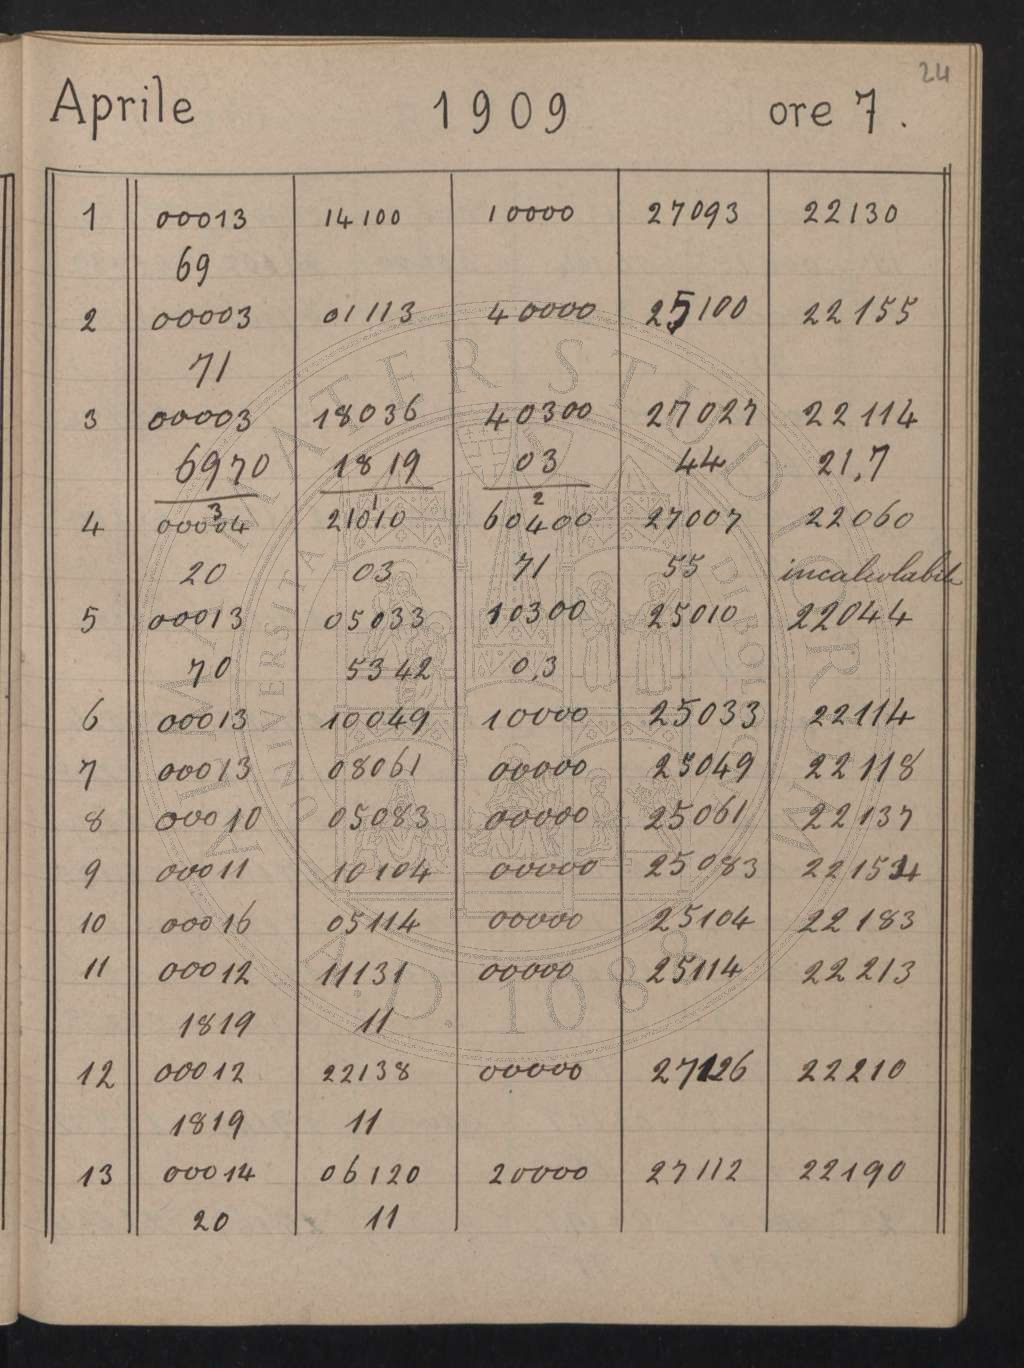 24
Aprile 1909 ore 7.
1 00013 14100 10000 27093 22130
69
2 00003 01113 40000 25100 22155
71
3 00003 18036 40300 27027 22114
6970 1819 03 44 21,7
3 1 2
4 00004 21010 60400 27007 22060
20 03 71 55 incalcolabile
5 00013 05033 10300 25010 22044
70 5342 0,3
6 00013 10049 10000 25033 22114
7 00013 08061 00000 25049 22118
8 00010 05083 00000 25061 22137
9 00011 10104 00000 25083
10 00016 05114 00000 25104 22183
11 00012 11131 00000 25114 22213
1819 11
12 00012 22138 00000 27126 22210
1819 11
13 00014 06120 20000 27112 22190
20 11
ALMA MATER STUDIORUM
UNIVERSITÀ DI BOLOGNA
A.D. 1088